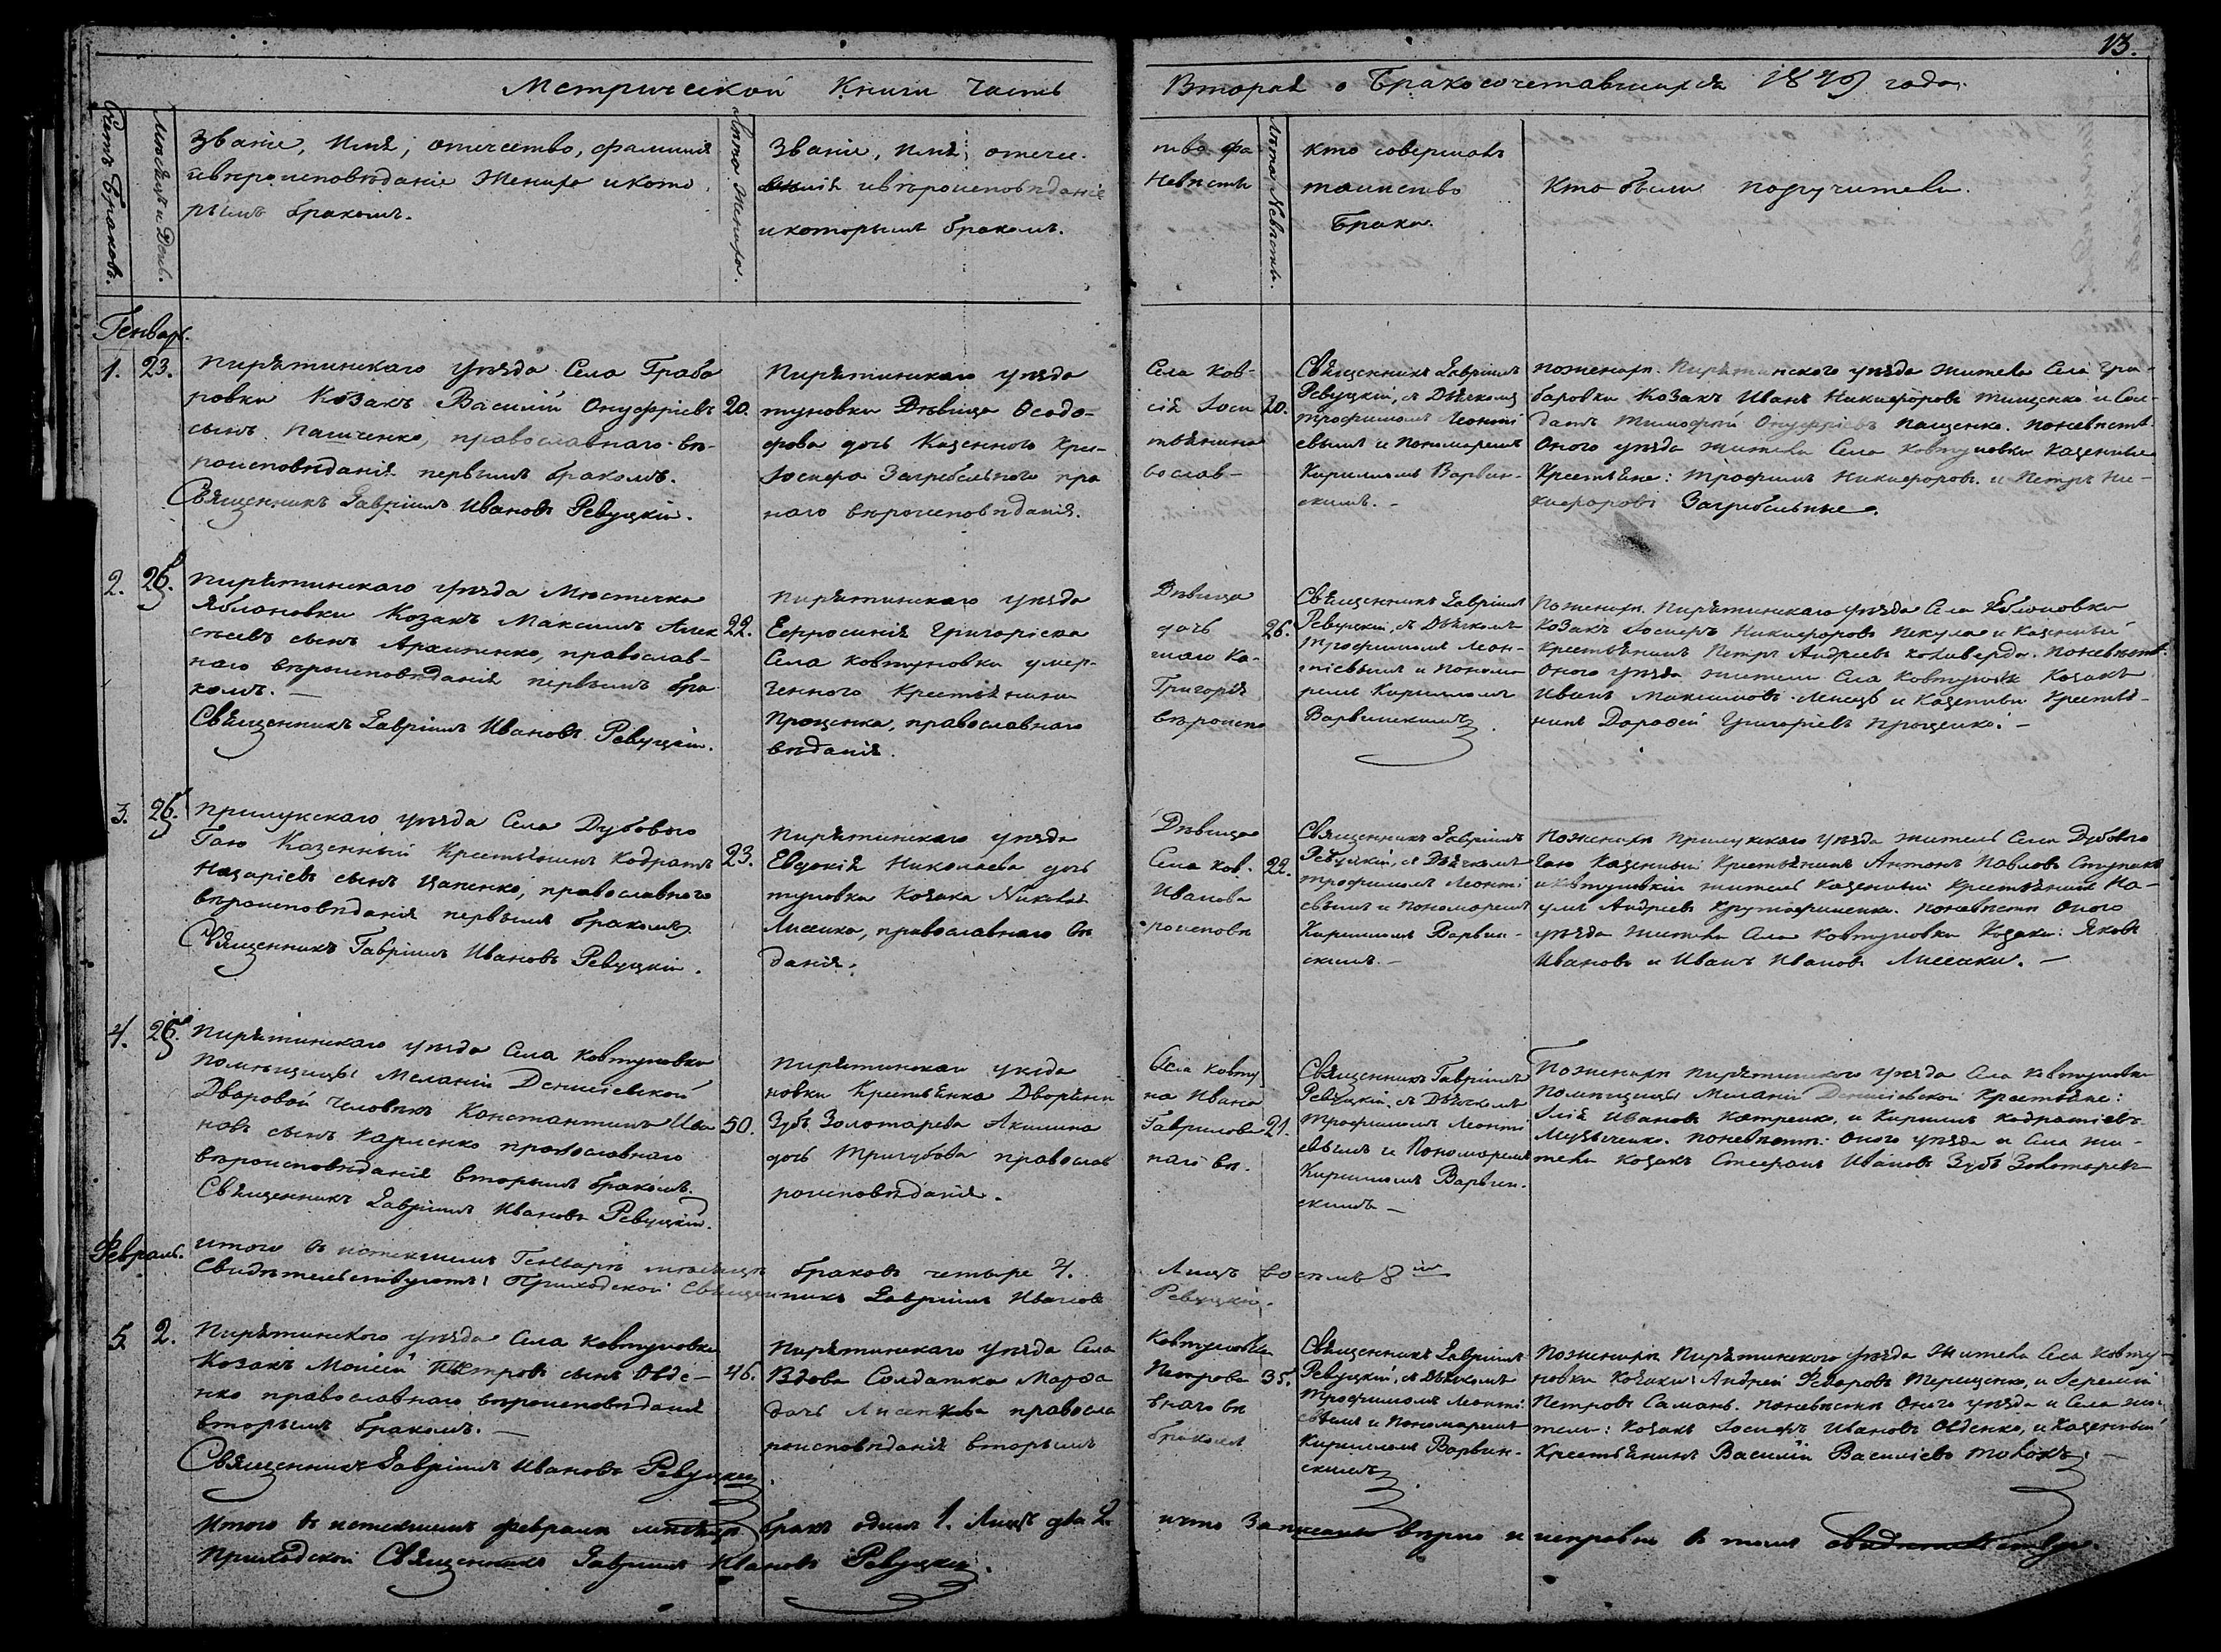 13.
Метрической Книги Часть Вторая о Бракосочетавшихся 18 года.
Счетъ Браковъ.
Мѣсяцъ и День.
Званіе, Имя, отечество, фамилия
и вѣроисповѣданіе Жениха и кото-
рымъ бракомъ.
Лѣта Жениха.
Званіе, Имя, отече- ство фа-
милія и вѣроисповѣданіе Невѣсты
и которымъ бракомъ.
Лѣта Невѣсты.
кто совершалъ
таинство
Брака.
Кто были поручители.
Генварь.
1. 23.
Пирятинскаго уѣзда Села Граба
ровки Козакъ Василій Онуфріевъ
сынъ Пащенко, православнаго вѣ-
роисповѣданія первымъ бракомъ.
Священникъ Гавріилъ Ивановъ Ревуцкій.
20.
Пирятинскаго уѣзда Села Ков-
туновки Дѣвица Ѳеодо- сія Іоси
фова дочь Казенного Крес- тьянина
Іосифа Загребельного пра вослав-
наго вѣроисповѣданія.
20.
Священникъ Гавріилъ
Ревуцкій, съ Дьячкомъ
Трофимомъ Леонті
евымъ и Пономаремъ
Кириломъ Варвин-
скимъ. -
По женихѣ. Пирятинского уѣзда жители Села Гра-
баровки Козакъ Иванъ Никифоровъ Тищенко и Сол-
датъ Тимофей Онуфріевъ Пащенко. По невѣстѣ
Оного уѣзда жители Села Ковтуновки Казенные
Крестьяне: Трофимъ Никифоровъ. и Петръ Ни-
кифоровъ Загребельные.
2. 26.
Пирятинскаго уѣзда Мѣстечка
Яблановки Козакъ Максимъ Алек
сѣевъ сынъ Архипенко, православ-
наго вѣроисповѣданія первымъ бра-
комъ. —
Священникъ Гавріилъ Ивановъ Ревуцкій.
22.
Пирятинскаго уѣзда Дѣвица
Ефросинія Григоріева дочь
Села Ковтуновки умер- шаго Ка-
зенного Крестьянина Григорія
Проценка, православнаго вѣроиспо
вѣданія.
26.
Священникъ Гавріилъ
Ревуцкій, съ Дьячкомъ
Трофимомъ Леон-
тіевымъ и Понома-
ремъ Кириломъ
Варвинскимъ
По женихѣ. Пирятинскаго уѣзда Села Яблоновки
Козакъ Іосифъ Никифоровъ и Казенный
Крестьянинъ Петръ Андреевъ . По невѣстѣ
Оного уѣзда жители Села Ковтуновки Козакъ
Иванъ Максимовъ и Казенный Крестья-
нинъ Дорофей Григоріевъ Проценко. —
3. 26.
Прилукскаго уѣзда Села Дубового
Гаю Казенный Крестьянинъ Кодратъ
Назаріевъ сынъ Цапенко, православного
вѣроисповѣданія первымъ бракомъ
Священникъ Гавріилъ Ивановъ Ревуцкій.
23.
Пирятинскаго уѣзда Дѣвица
Евдокія Николаева дочь Села Ков-
туновка Козака Николая Иванова
Лисенка, православнаго вѣ роисповѣ
данія.
22.
Священникъ Гавріилъ
Ревуцкій, съ Дьячкомъ
Трофимомъ Леонті
евымъ и Пономаремъ
Кириломъ Варвин-
скимъ. —
По женихѣ Прилукскаго уѣзда житель Села Дубового
Гаю Казенный Крестьянинъ Антонъ Павловъ
и Ковтуновкій житель Казенный Крестьянинъ На-
умъ Андреевъ . По невѣстѣ Оного
уѣзда жители Села Ковтуновки Козаки: Яковъ
Ивановъ и Иванъ Ивановъ Лисенки. —
4. 26.
Пирятинскаго уѣзда Села Ковтуновки
Помѣщицы Меланіи
Дворовой человѣкъ Константинъ Ива
новъ сынъ Карпенко православнаго
вѣроисповѣданія вторымъ бракомъ.
Священникъ Гавріилъ Ивановъ Ревуцкій.
50.
Пирятинскаго уѣзда Села Ковту
новки Крестьянка Дворяни на Ивана
Зубъ Золотарева Акилина Гаврилова
дочь Тригубова православ наго вѣ-
роисповѣданія.
21.
Священникъ Гавріилъ
Ревуцкій, съ Дьячкомъ
Трофимомъ Леонті
евымъ и Пономаремъ
Кириломъ Варвин-
скимъ —
По женихѣ Пирятинскаго уѣзда Села Ковтуновки
Помѣщицы Меланіи Крестьяне:
Илія Ивановъ , и Кирилъ Кодратіевъ
. По невѣстѣ: Оного уѣзда и Села жи-
тель Козакъ Стефанъ Ивановъ Зубъ Золотаревъ
Итого въ истекшемъ Генварѣ мѣсяцѣ браковъ четыре 4. Лицъ восемь 8
Свидѣтельствуетъ: Приходской Священникъ Гавріилъ Ивановъ Ревуцкій.
Февраль.
5. 2.
Пирятинского уѣзда Села Ковтуновки
Козакъ Моисей Петровъ сынъ Овде-
нко православнаго вѣроисповѣданія
вторымъ бракомъ. —
Священникъ Гавріилъ Ивановъ Ревуцкій
46.
Пирятинскаго уѣзда Села Ковтуновки
Вдова Солдатка Марфа Петрова
дочь Лисенкова правосла внаго вѣ
роисповѣданія вторымъ бракомъ
35.
Священникъ Гавріилъ
Ревуцкій, съ Дьячкомъ
Трофимомъ Леонті
евымъ и Пономаремъ
Кириломъ Варвин-
скимъ
По женихѣ Пирятинского уѣзда жители Села Ковту-
новки Козаки: Андрей Федоровъ Терещенко, и Іеремій
Петровъ . По невѣстѣ Оного уѣзда и Села жи-
тели: Козакъ Іосифъ Ивановъ Овденко, и Казенный
Крестьянинъ Василій Василіевъ . —
Итого въ истекшемъ февралѣ мѣсяцѣ бракъ одинъ 1. Лицъ два 2. и что Записаны вѣрно и исправно въ томъ свидѣтельствую.
Приходской Священникъ Гавріилъ Ивановъ Ревуцкій.